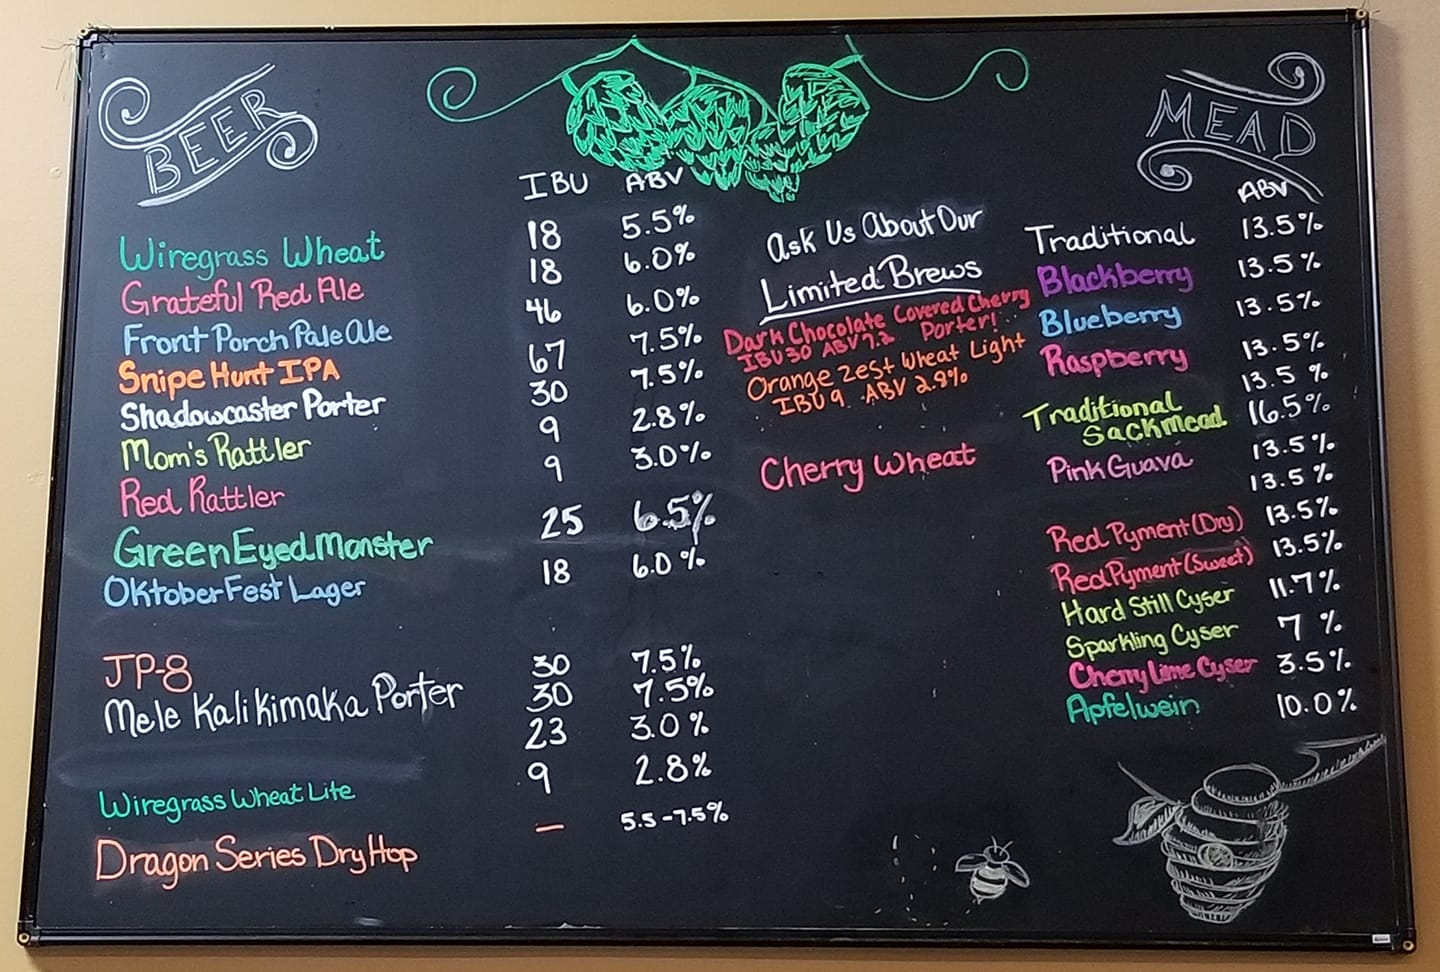 BEER
MEAD
IBU ABV
Wiregrass Wheat 18 5.5%
Grateful Red Ale 18 6.0%
Front Porch Pale Ale 46 6.0%
Snipe Hunt IPA 67 7.5%
Shadowcaster Porter 30 7.5%
Mom's Rattler 9 2.8%
Red Rattler 9 3.0%
Green Eyed Monster 25 6.5%
OktoberFest Lager 18 6.0%
JP-8 30 7.5%
Mele Kalikimaka Porter 30 7.5%
23 3.0%
Wiregrass Wheat Lite 9 2.8%
Dragon Series Dry Hop — 5.5-7.5%
Ask Us About Our
Limited Brews
Dark Chocolate Covered Cherry
IBU 30 ABV 7.2 Porter!
Orange Zest Wheat Light
IBU 9 ABV 2.8%
Cherry Wheat
ABV
Traditional 13.5%
Blackberry 13.5%
Blueberry 13.5%
Raspberry 13.5%
13.5%
Traditional 16.5%
Sack mead
Pink Guava 13.5%
13.5%
Red Pyment (Dry) 13.5%
Red Pyment (Sweet) 13.5%
Hard Still Cyser 11.7%
Sparkling Cyser 7%
Cherry Lime Cyser 3.5%
Apfelwein 10.0%